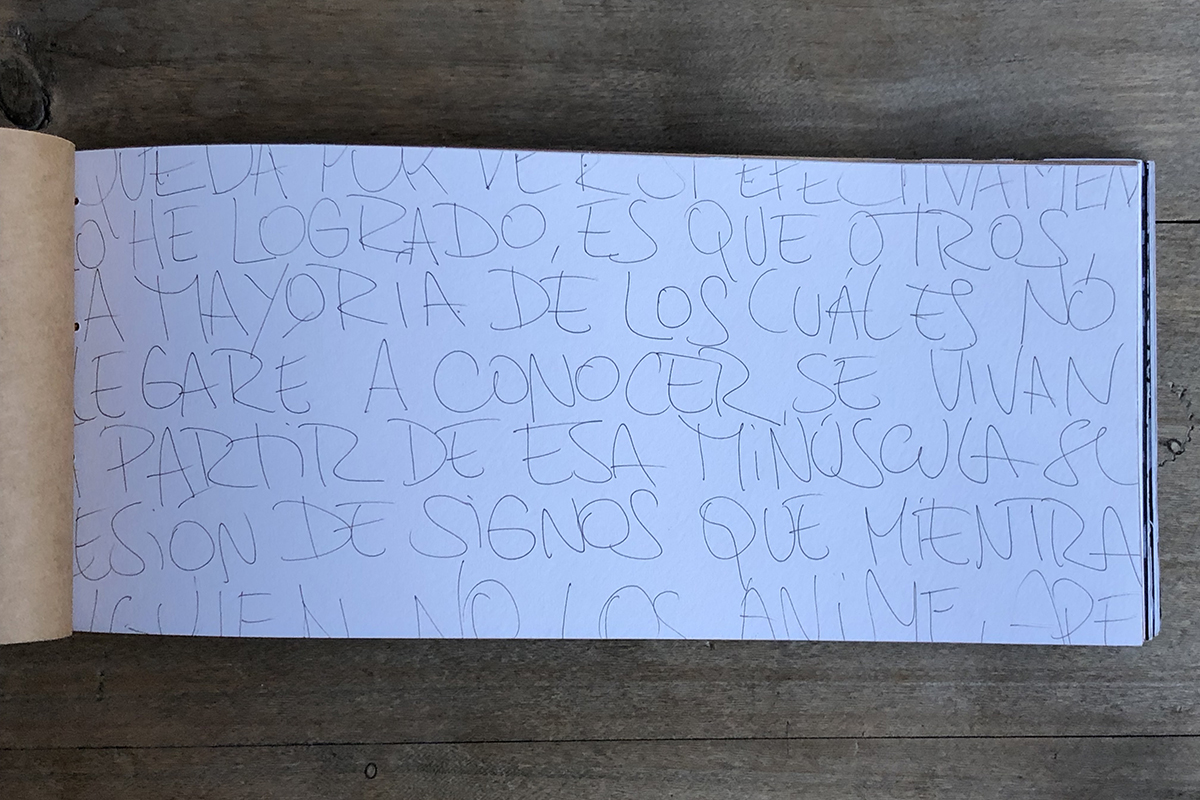 QUEDA POR VER SI EFECTIVAMEN
O HE LOGRADO, ES QUE OTROS,
A MAYORIA DE LOS CUÁLES NO
LEGARE A CONOCER, SE VIVAN
A PARTIR DE ESA MINÚSCULA SU
ESIÓN DE SIGNOS QUE MIENTRA
LGUIEN NO LOS ANIME, PE